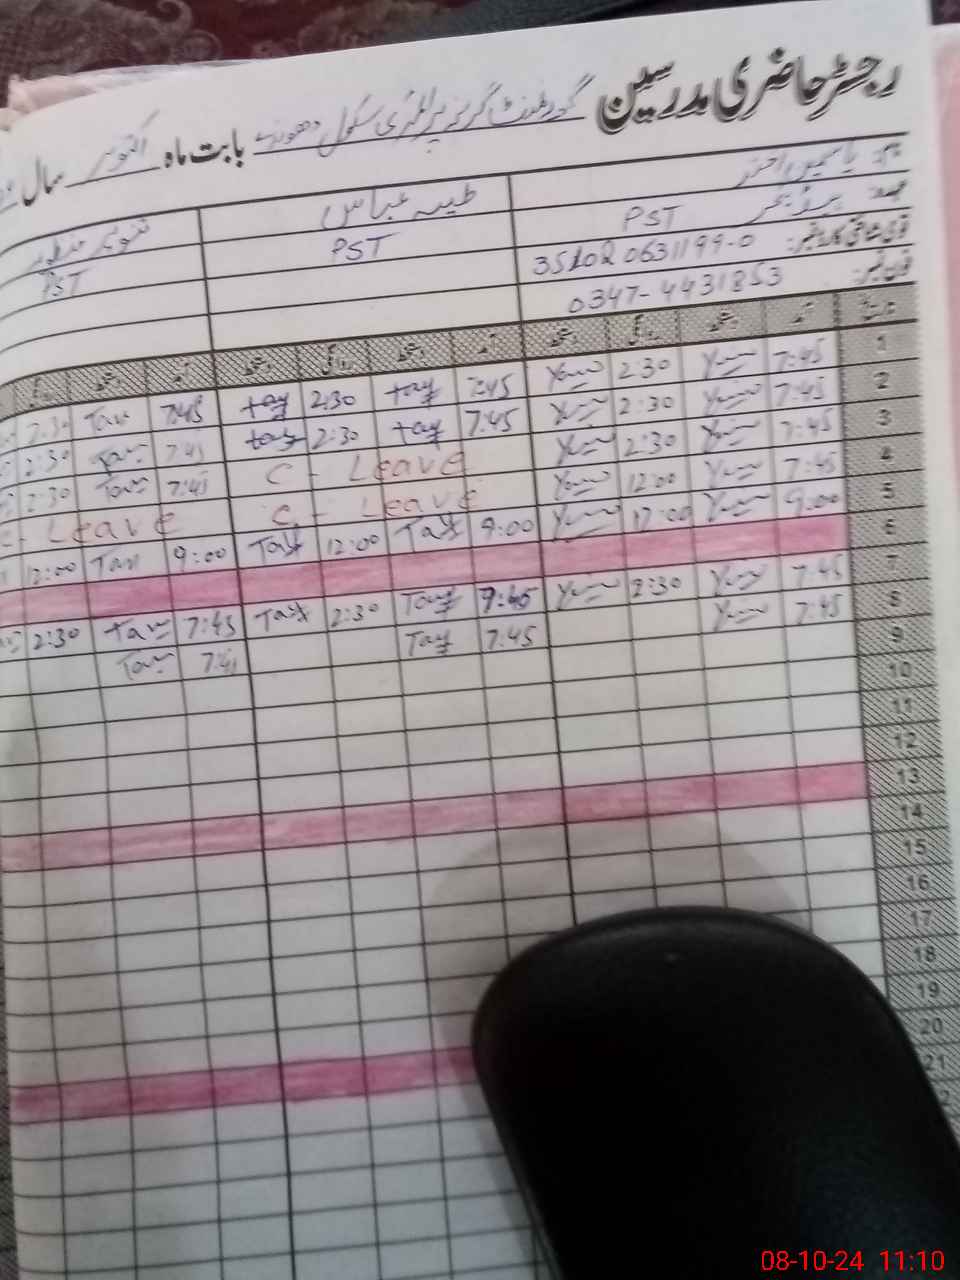 رجسٹر حاضری مدرسین گورنمنٹ گرلز پرائمری سکول بابت ماہ اکتوبر سال
نام: یاسمین اختر طیبہ عباس تنویر منظور
عہدہ: PST PST PST
قومی شناختی کارڈ نمبر: 35102 0631199-0
فون نمبر: 0347-4431853
تاریخ آمد دستخط روانگی دستخط آمد دستخط روانگی دستخط آمد دستخط روانگی
1 7:45 2:30 7:45 tay 2:30 tay 7:45 Tan 2:30
2 7:45 2:30 7:45 tay 2:30 tay 7:45 Tan 2:30
3 7:45 2:30 C - Leave 7:45 Tan 2:30
4 7:45 12:00 C - Leave C - Leave
5 9:00 12:00 9:00 Tay 12:00 Tay 9:00 Tan 12:00
6
7 7:45 2:30 7:45 Tay 2:30 Tay 7:45 Tan 2:30
8 7:45 7:45 Tay 7:45 Tan
9
10
11
12
13
14
15
16
17
18
19
20
21
08-10-24 11:10